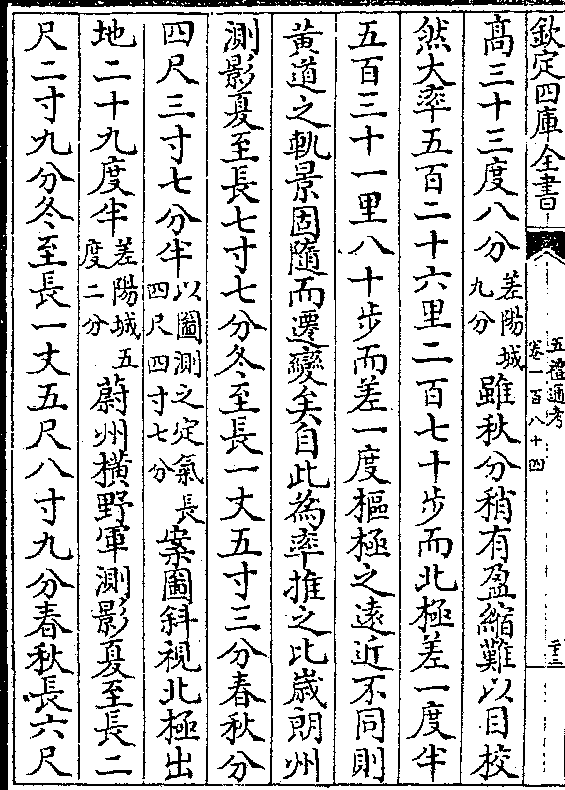 欽定四庫全書
五禮通考
卷一百八十四
二十三
高三十三度八分差陽城九分雖秋分稍有盈縮難以目校
然大率五百二十六里二百七十步而北極差一度半
五百三十一里八十步而差一度樞極之遠近不同則
黄道之軌景固隨而遷變矣自此為率推之比嵗朗州
測影夏至長七寸七分冬至長一丈五寸三分春秋分
四尺三寸七分半以圖測之定氣長四尺四寸七分案圖斜視北極出
地二十九度半差陽城五度二分蔚州横野軍測影夏至長二
尺二寸九分冬至長一丈五尺八寸九分春秋長六尺